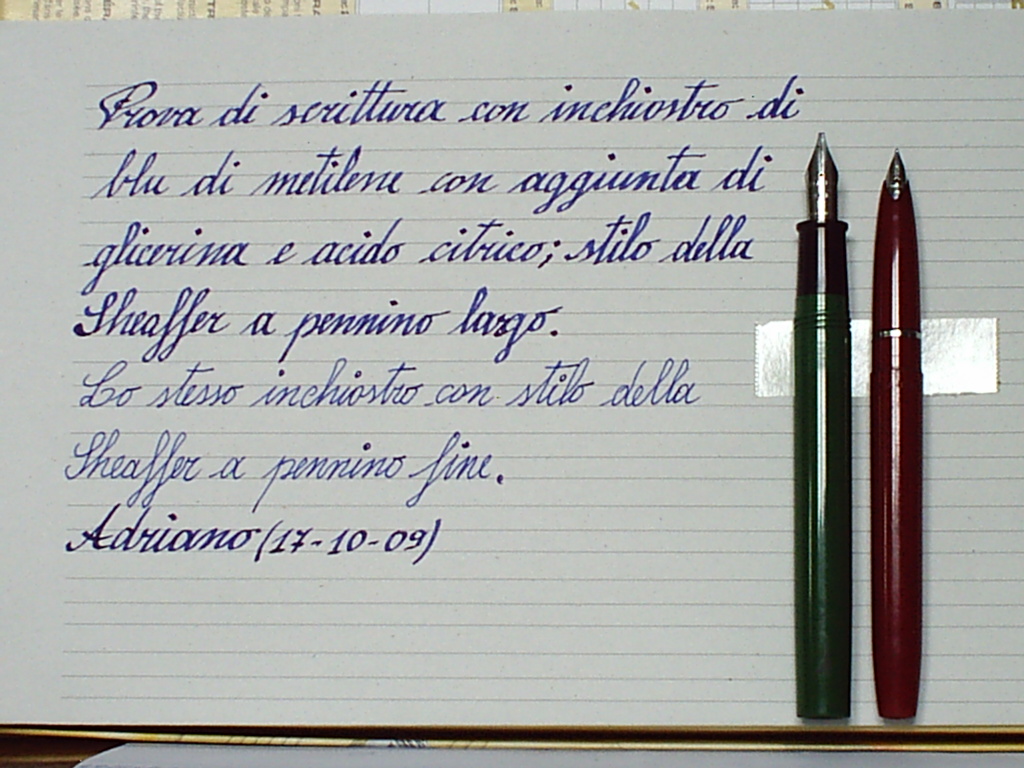 Prova di scrittura con inchiostro di
blu di metilene con aggiunta di
glicerina e acido citrico; stilo della
Sheaffer a pennino largo.
Lo stesso inchiostro con stilo della
Sheaffer a pennino fine.
Adriano (17-10-09)